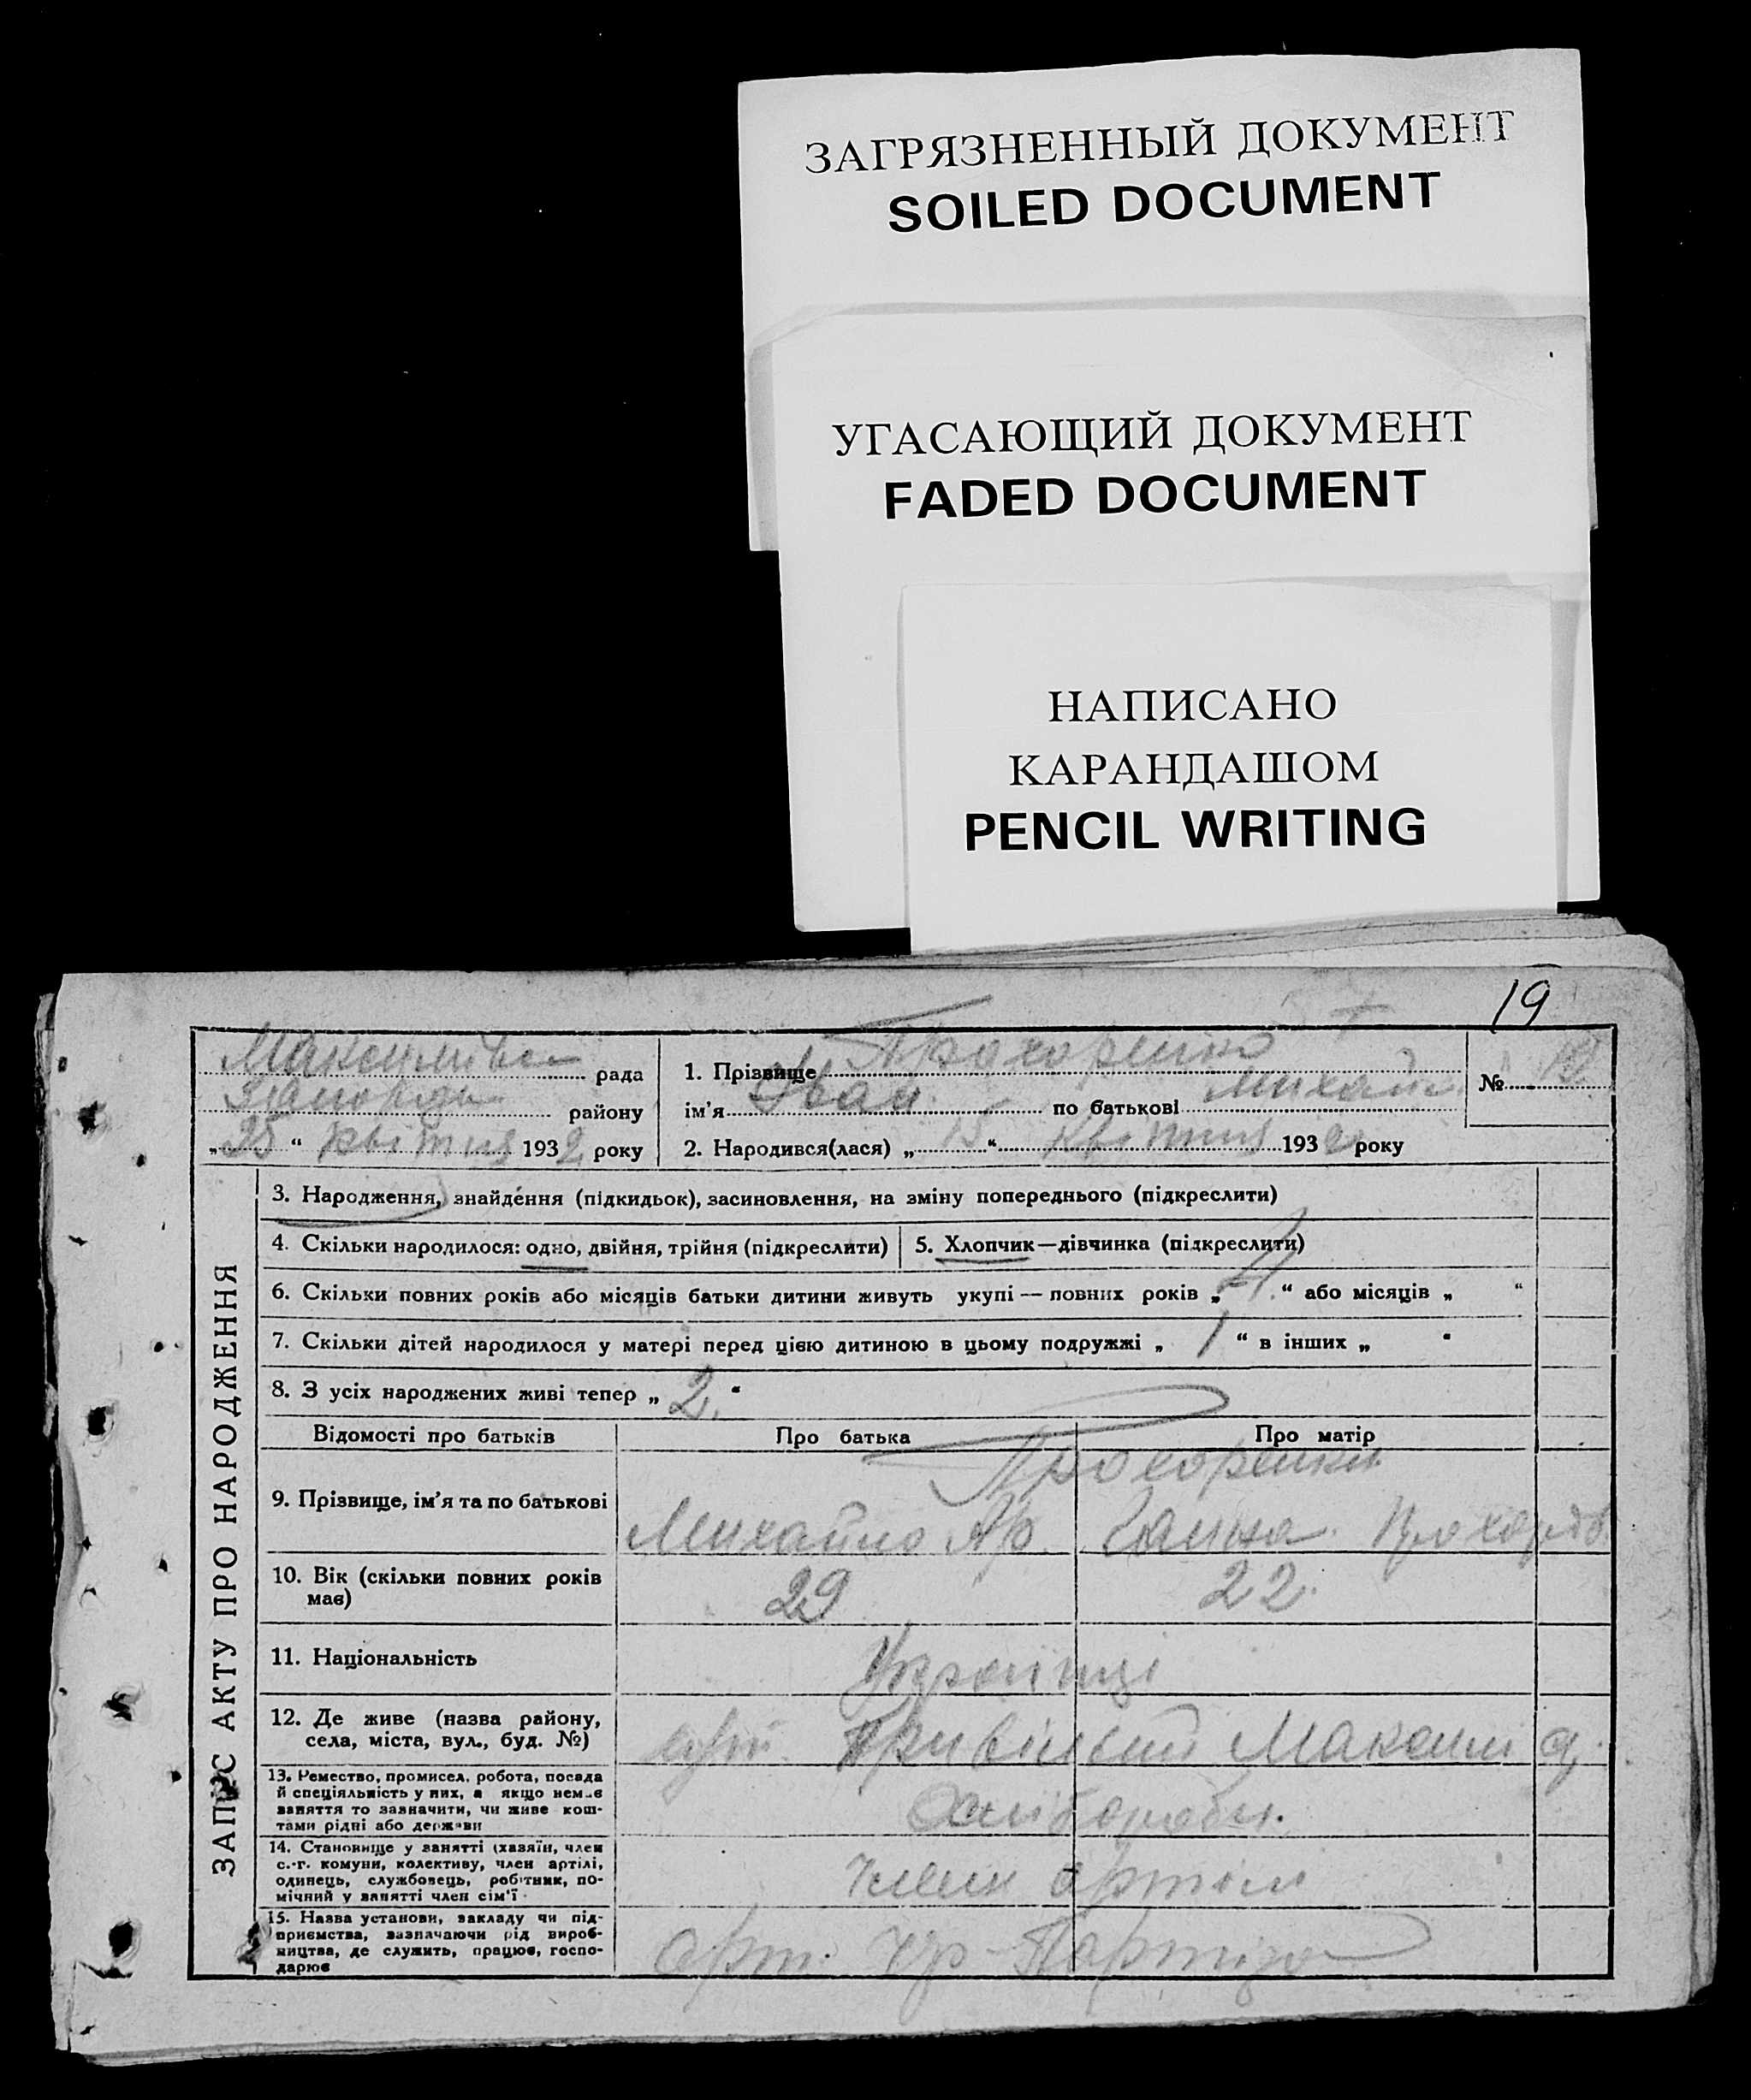 ЗАГРЯЗНЕННЫЙ ДОКУМЕНТ
SOILED DOCUMENT
УГАСАЮЩИЙ ДОКУМЕНТ
FADED DOCUMENT
НАПИСАНО
КАРАНДАШОМ
PENCIL WRITING
19
рада
району
„25“ квітня 1932 року
1. Прізвище Прохоренко
ім'я Іван по батькові Михайл
№
2. Народився(лася) „15“ квітня 1932 року
ЗАПИС АКТУ ПРО НАРОДЖЕННЯ
3. Народження, знайдення (підкидьок), засиновлення, на зміну попереднього (підкреслити)
4. Скільки народилося: одно, двійня, трійня (підкреслити)
5. Хлопчик—дівчинка (підкреслити)
6. Скільки повних років або місяців батьки дитини живуть укупі — повних років „4“ або місяців „ “
7. Скільки дітей народилося у матері перед цією дитиною в цьому подружжі „1“ в інших „ “
8. З усіх народжених живі тепер „2“
Відомості про батьків Про батька Про матір
Прохоренки
9. Прізвище, ім'я та по батькові Михайло Пр. Ганна Прохорів
10. Вік (скільки повних років має) 29 22
11. Національність Українці
12. Де живе (назва району,
села, міста, вул., буд. №)
13. Ремество, промисел, робота, посада
й спеціяльність у них, а якщо немає
заняття то зазначити, чи живе кош-
тами рідні або держави
Хлібороби.
14. Становище у занятті (хазяїн, член
с.-г. комуни, колективу, член артілі,
одинець, службовець, робітник, по-
мічний у занятті член сім'ї
член артіли
15. Назва установи, закладу чи під-
приємства, зазначаючи рід вироб-
ництва, де служить, працює, госпо-
дарює
арт. Чр-Партиза